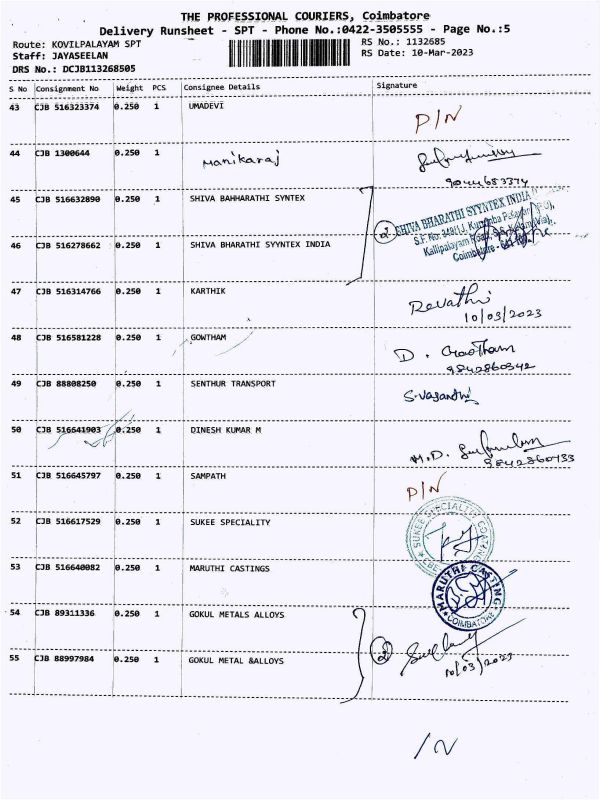 THE PROFESSIONAL COURIERS, Coimbatore
Delivery Runsheet - SPT - Phone No.:0422-3505555 - Page No.:5
Route: KOVILPALAYAM SPT
RS No.: 1132685
Staff: JAYASEELAN
RS Date: 10-Mar-2023
DRS No.: DCJB113268505
S No Consignment No Weight PCS Consignee Details Signature
43 CJB 516323374 0.250 1 UMADEVI P/N
44 CJB 1300644 0.250 1 Manikaraj
9044683374
45 CJB 516632890 0.250 1 SHIVA BAHHARATHI SYNTEX
2 SHIVA BHARATHI SYYNTEX INDIA
46 CJB 516278662 0.250 1 SHIVA BHARATHI SYYNTEX INDIA
Coimbatore
47 CJB 516314766 0.250 1 KARTHIK Revathi
10/03/2023
48 CJB 516581228 0.250 1 GOWTHAM D. Gowtham
9842860342
49 CJB 88808250 0.250 1 SENTHUR TRANSPORT S. Vasanthi
50 CJB 516641903 0.250 1 DINESH KUMAR M M.D.
9842860433
51 CJB 516645797 0.250 1 SAMPATH P/N
52 CJB 516617529 0.250 1 SUKEE SPECIALITY SUKEE SPECIALITY COATING
53 CJB 516640082 0.250 1 MARUTHI CASTINGS MARUTHI CASTING COIMBATORE
54 CJB 89311336 0.250 1 GOKUL METALS ALLOYS
2
55 CJB 88997984 0.250 1 GOKUL METAL &ALLOYS
10/03/2023
/N